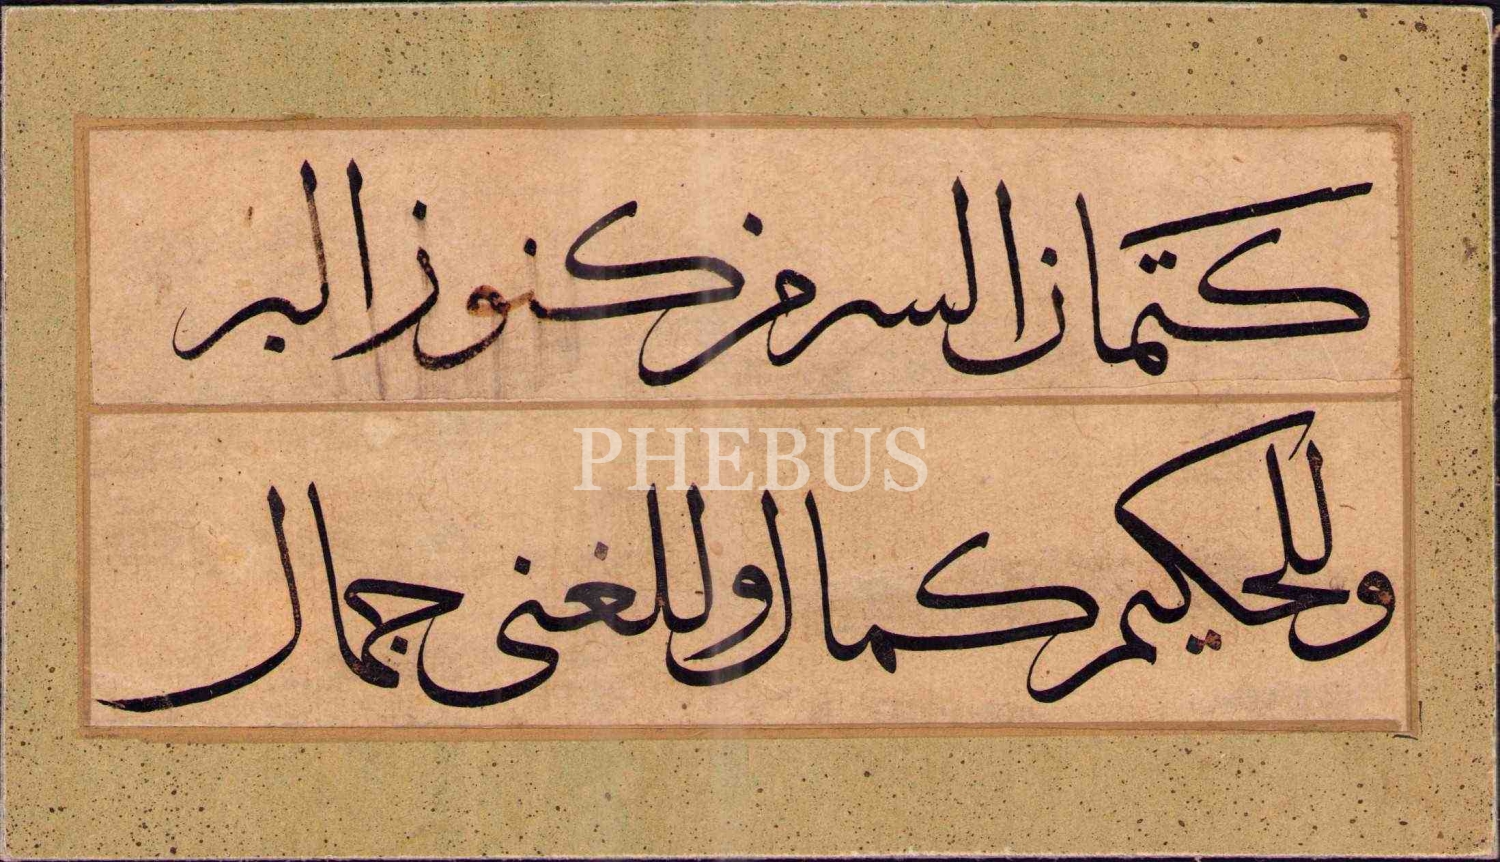 كتمان السر من كنوز البر
PHEBUS
وللحكيم كمال وللغنى جمال